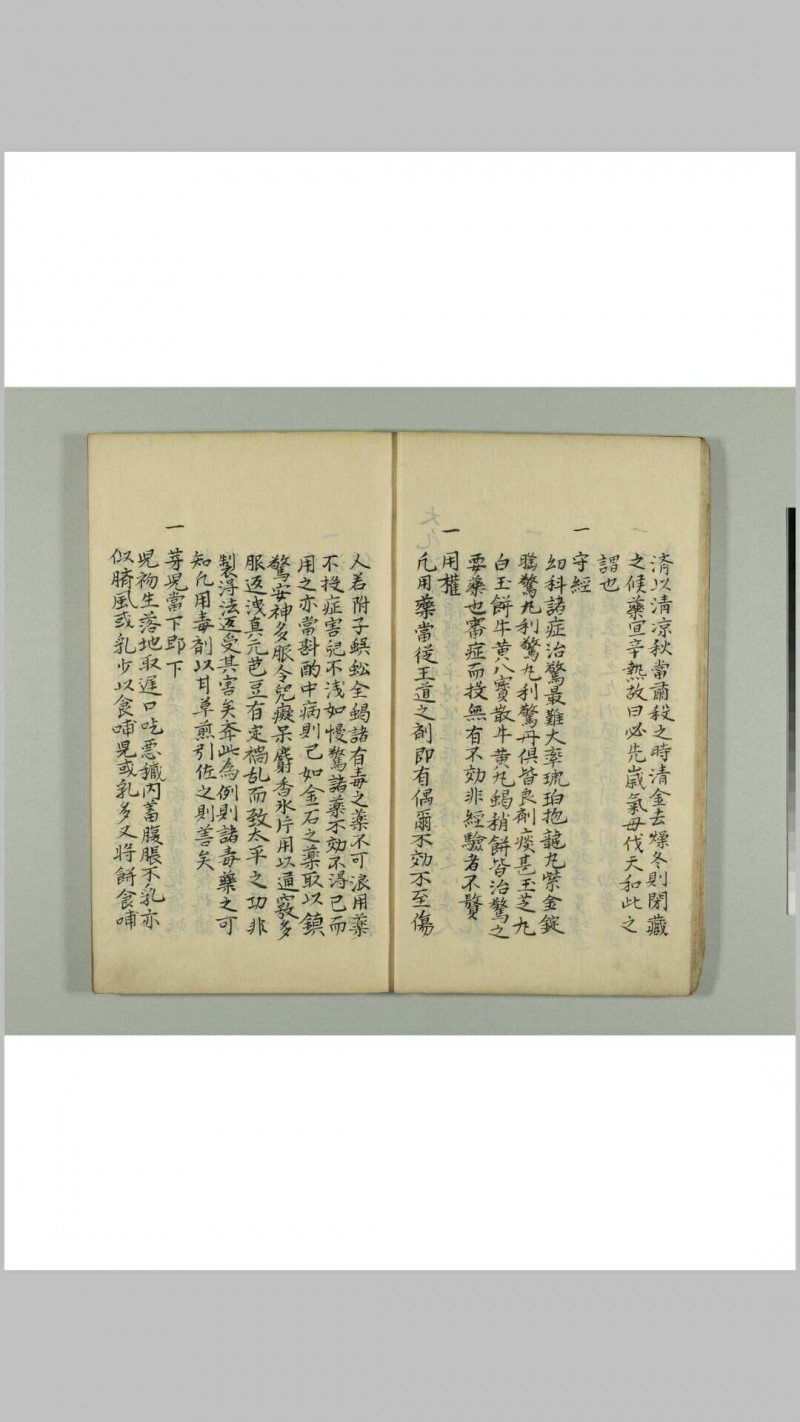 濟以清凉秋當肅殺之時清金去燥冬則閉藏
之候藥宜辛熱故曰必先歲氣毋伐天和此之
謂也
一
守經
幼科諸症治驚最難大率琥珀抱龍丸紫金錠
鎮驚丸利驚丸利驚丹俱皆良劑痰甚玉芝丸
白玉餅牛黄八寳散牛黄丸蝎稍餅皆治驚之
要藥也審症而投無有不効非經驗者不贅
一
用權
凢用藥當従王道之劑即有偶爾不効不至傷
人若附子蜈蚣全蝎諸有毒之薬不可浪用藥
不投症害兒不浅如慢驚諸薬不効不得已而
用之亦當斟酌中病則已如金石之薬取以鎮
驚安神多服令兒癡呆麝香氷片用以通竅多
服返洩真元芭豆有定禍乱而致太平之功非
製淂法返受其害矣奔此為例則諸毒藥之可
知凢用毒劑以甘草煎引佐之則善矣
一
芽兒當下即下
兒初生落地取遲口吃悪穢内蓄腹脹不乳亦
似臍風或乳少以食哺兒或乳多又將餅食哺